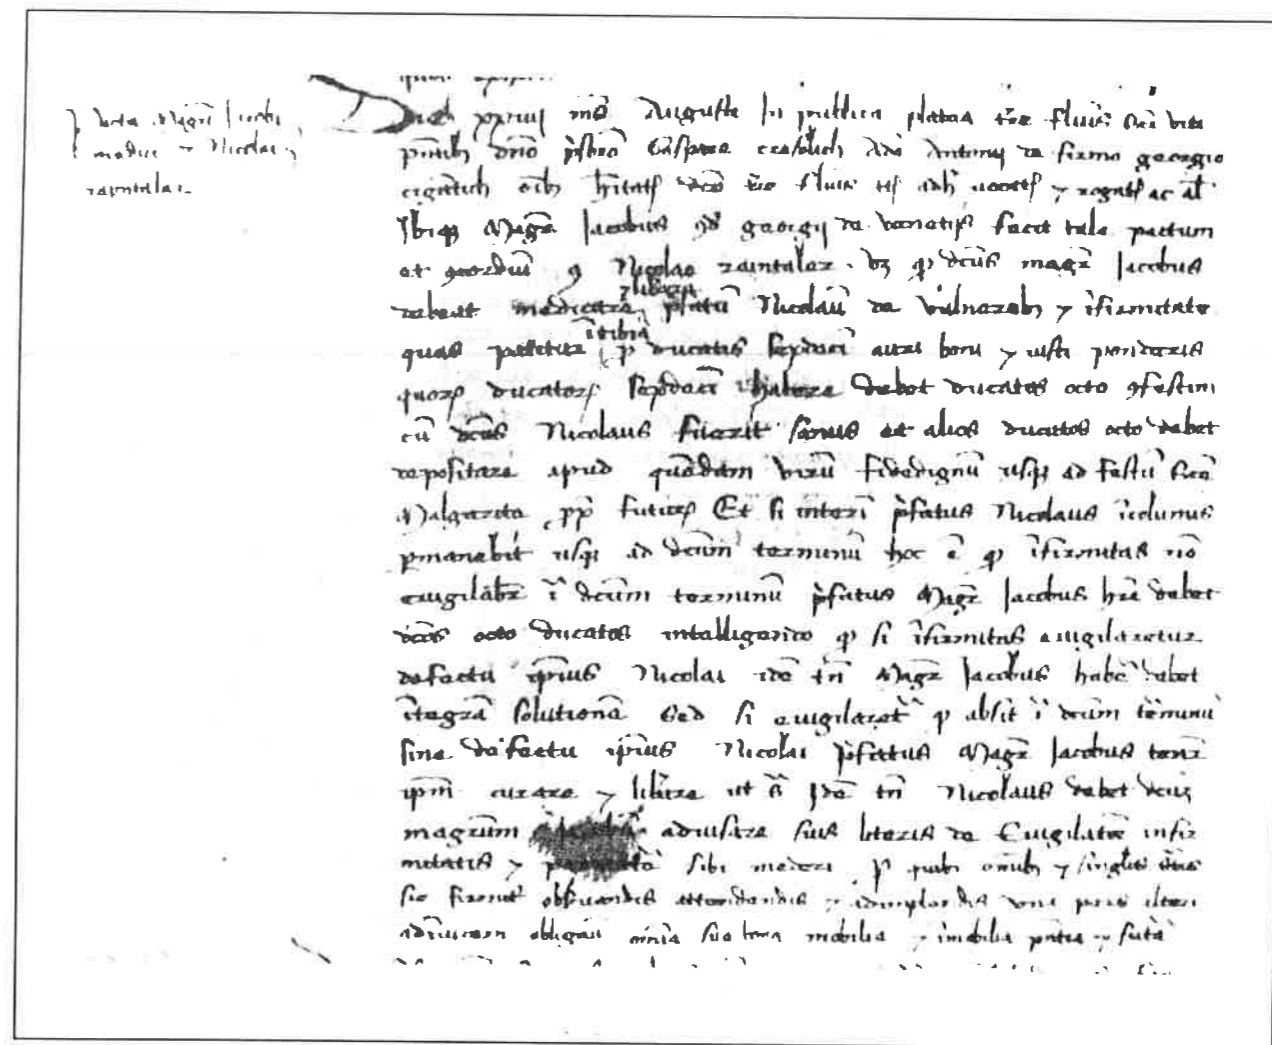 pacta Magri Jacobi
medici et Nicolai
raintaler
Die xxviiij mēs Augusti In publica platea t̄re fluīs Sc̄i viti
p̄ntib; dn̄o p̄sb̄ro Gaspare Adō Antonij de firmo georgio
oīb; h̄itat; dc̄e t̄re fluīs tt; adh̄ uocat; et rogat; ac al̄
Ibiq; Magr̄ Jacobus ꝯd georgij de venetijs fecit tale pactum
et ꝯcordiū ꝯ Nicolao raintaler vz ꝙ dc̄us magr̄ Jacobus
et liberare
debeat medicare p̄fatū Nicolaū de vulnereb; et īfirmitate
ī tibia
quas patitur p ducatis sexdecī auri boni et iusti ponderis
quor; ducator; sexdecī habere debet ducatos octo ꝯfestim
cū dc̄us Nicolaus fuerit sanus et alios ducatos octo debet
depositare apud quēdam virū fidedignū usq; ad festū Sc̄e
Malgarite pp̄ futur; Et si interī p̄fatus Nicolaus īcolumis
p̄manebit usq; ad dc̄um terminū hoc ē ꝙ īfirmitas nō
euigilabr̄ ī dc̄um terminū p̄fatus Magr̄ Jacobus hr̄e debet
dc̄os octo ducatos intelligendo ꝙ si īfirmitas euigilaretur
defectu ip̄ius Nicolai idē tn̄ Magr̄ Jacobus habē debet
ītegrā solutionē Sed si euigilaret̄ ꝙ absit ī dc̄um t̄minū
sine defectu ip̄ius Nicolai p̄fatus Magr̄ Jacobus tenr̄
ip̄m curare et lib̄are ut s̄ Idē tn̄ Nicolaus debet dc̄um
magr̄um Jacobū aduisare suis literis de Euigilatōe infir
mitatis et sibi mederi P quib; om̄ib; et singulis
sic firmit̄ obseruandis attendendis et adimplendis una pars alteri
adīuicem obligaūt om̄ia sua bona mobilia et īmobilia p̄ntia et futūa